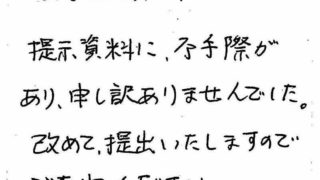 提示資料に、不手際が
あり、申し訳ありませんでした。
改めて、提出いたしますので